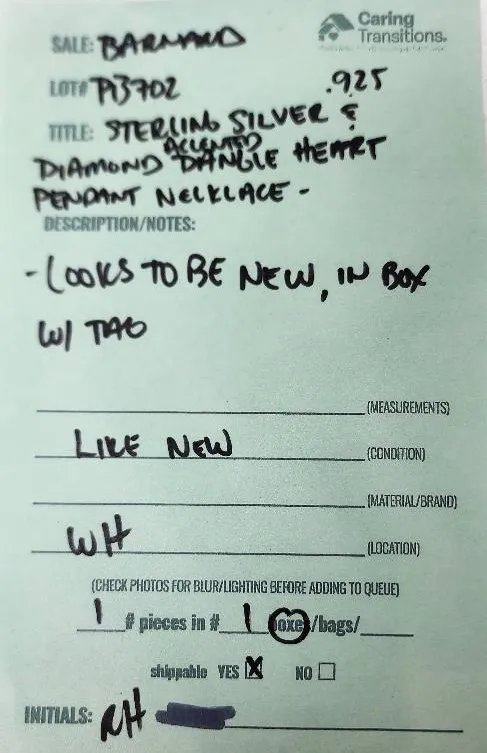 Caring
Transitions.
SALE: BARNARD
LOT# P13702 .925
TITLE: STERLING SILVER &
ACCENTED
DIAMOND DANGLE HEART
PENDANT NECKLACE -
DESCRIPTION/NOTES:
- LOOKS TO BE NEW, IN BOX
W/ TAG
(MEASUREMENTS)
LIKE NEW (CONDITION)
(MATERIAL/BRAND)
WH (LOCATION)
(CHECK PHOTOS FOR BLUR/LIGHTING BEFORE ADDING TO QUEUE)
1 # pieces in # 1 boxes/bags/
shippable YES X NO
INITIALS: RH